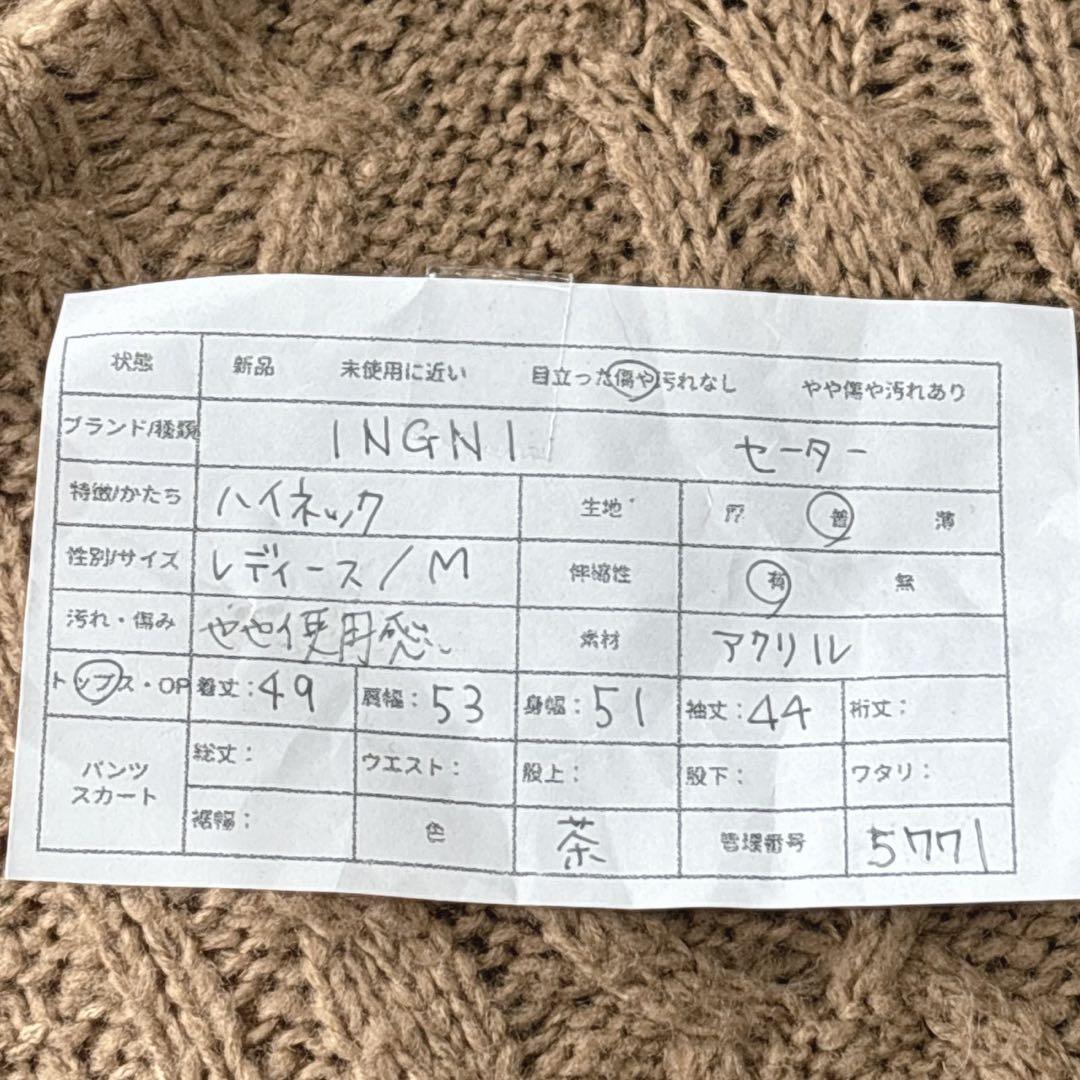 状態 新品 未使用に近い 目立った傷や汚れなし やや傷や汚れあり
ブランド/種類 INGNI セーター
特徴/かたち ハイネック 生地 厚 普 薄
性別/サイズ レディース/M 伸縮性 有 無
汚れ・傷み やや使用感 素材 アクリル
トップス・OP 着丈:49 肩幅:53 身幅:51 袖丈:44 裄丈:
パンツ スカート 総丈: ウエスト: 股上: 股下: ワタリ:
裾幅: 色 茶 管理番号 5771